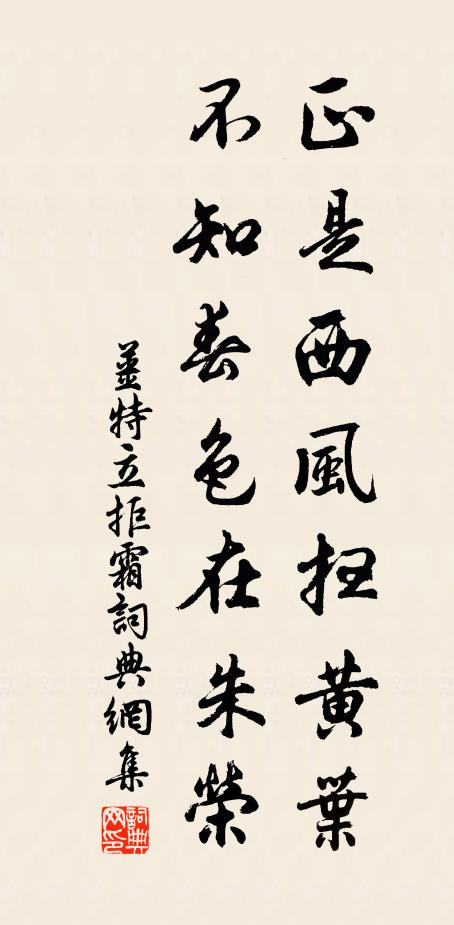 正是西風扫黃葉
不知春色在朱榮
薑特立拒霜詞典網集
詞典网印